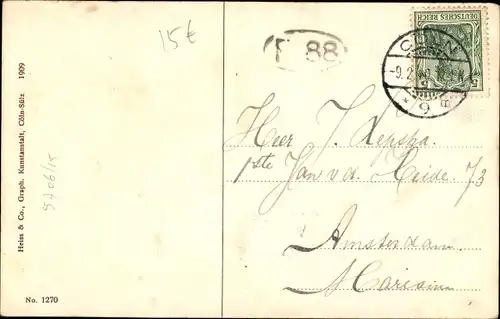 15€
Heiss & Co., Graph. Kunstanstalt, Cöln-Sülz 1909
5706/15
No. 1270
88
DEUTSCHES REICH
5
CÖLN
9
Heer J. Lepsha
1ste Jan v. d. Heide 73
Amsterdam